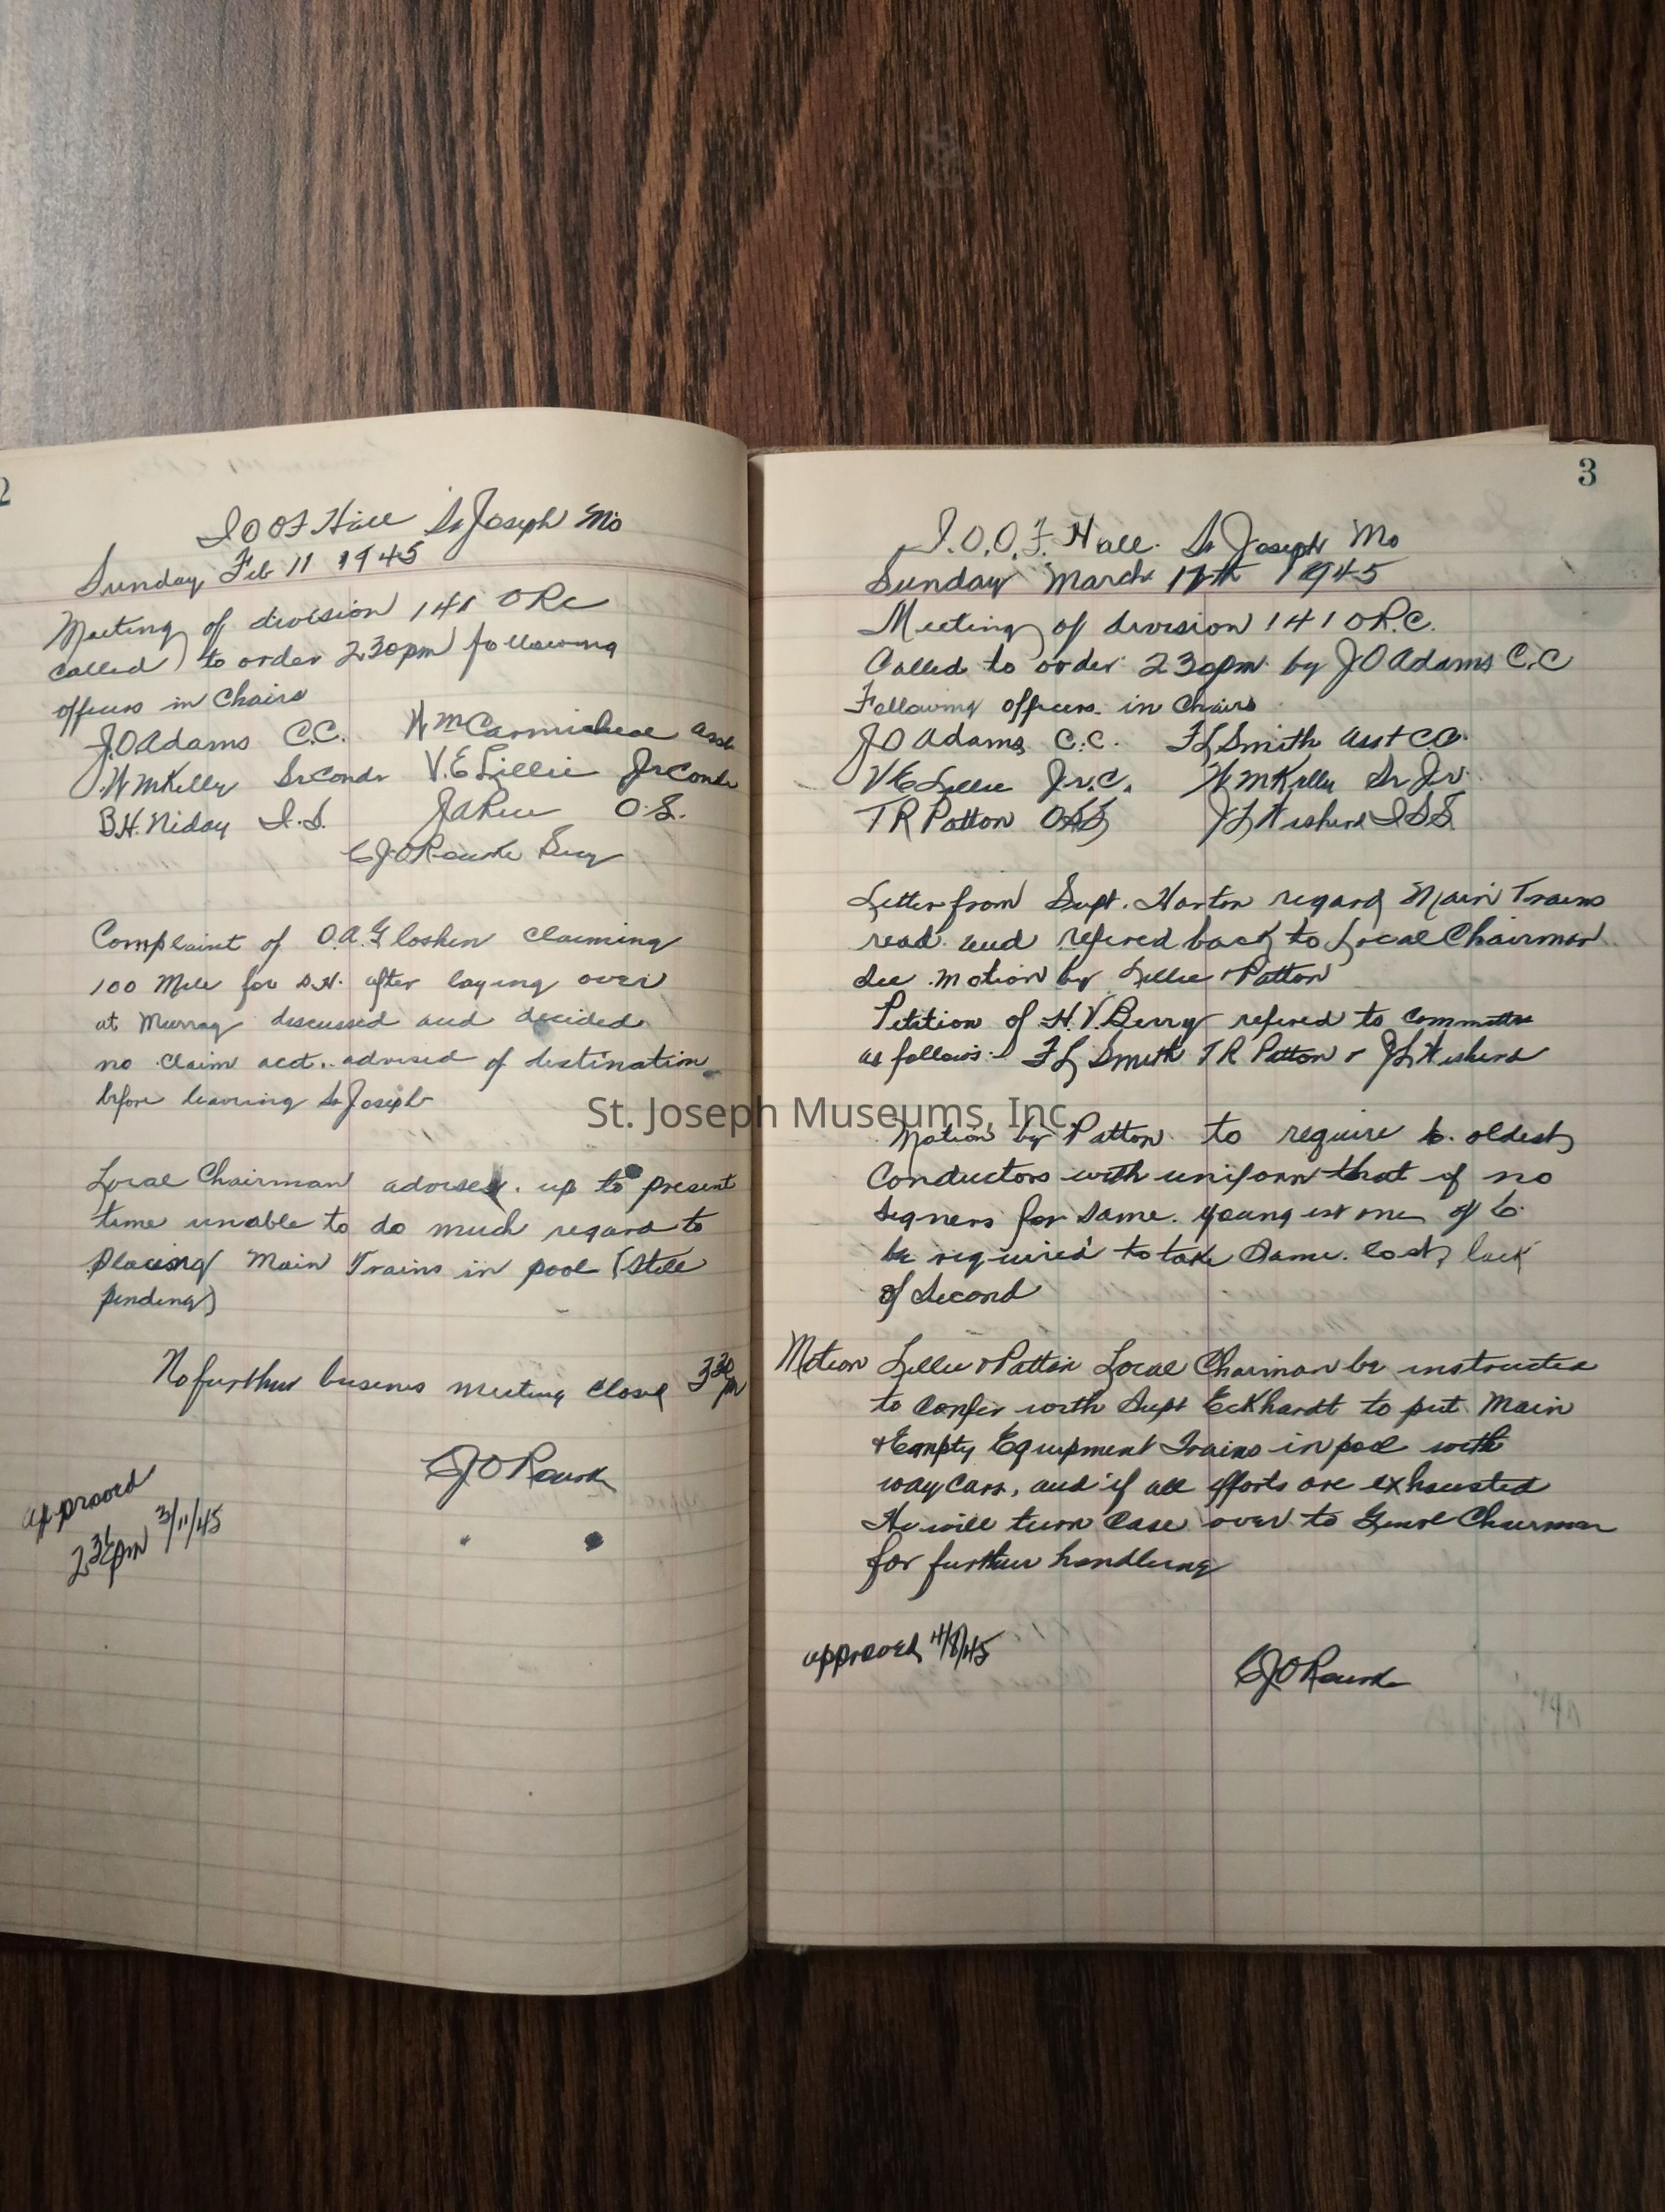 2
I O O F Hall St Joseph Mo
Sunday Feb 11 1945
Meeting of division 141 O R C
called to order 2 30 pm following
officers in Chairs
J. O Adams C.C. W M Carmichael Asst
W M Kelly Sr Condr V. E Lillie Jr Condr
B. H. Niday I. S. J A Rice O. S.
C J O Rourke Secy
Complaint of O. A. Gloshen claiming
100 Mile for D. H. after laying over
at Murray discussed and decided
no claim acct. advised of destination
before leaving St Joseph
Local Chairman advises. up to present
time unable to do much regard to
placeing Main Trains in pool (Still
pending)
No further busines meeting closed 3 30 pm
C J O Rourk
approved
2 36 pm 3/11/45
3
I. O. O. F. Hall. St Joseph Mo
Sunday March 1945
Meeting of division 141 O R. C.
Called to order 2 30 pm by J O Adams C. C
Following officers in Chairs
J O Adams C. C. F L Smith Asst C. C.
V E Lillie Jr. C. W M Kelly Sr
T R Patton O S S J L I S S
Letter from Supt. Horton regard Main Trains
read and refered back to Local Chairman
See motion by Lillie + Patton
Petition of H. V. Berry refered to Committe
as follows: F L Smith T R Patton + J L
St. Joseph Museums, Inc.
Motion by Patton to require 6. oldest
Conductors with uniform that if no
signers for same. youngest one of 6.
be required to take same. lost, lack
of second
Motion Lillie + Patton Local Chairman be instructed
to confer with Supt Eckhardt to put Main
+ Empty Equipment Trains in pool with
way cars, and if all efforts are exhausted
He will turn case over to Genrl Chairman
for further handling
approved 4/8/45
C J O Rourk